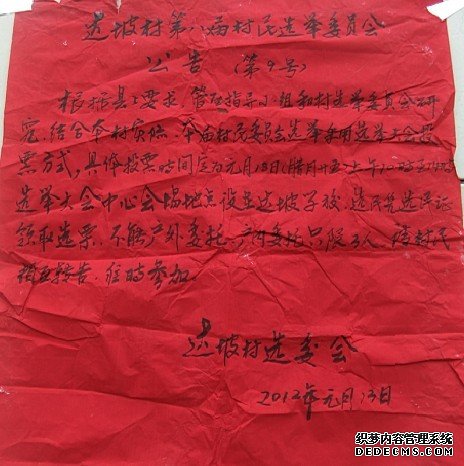 达坡村第八届村民选举委员会
公告（第9号）
根据县上要求，管理指导小组和村选举委员会研
究，结合本村实际，本届村民委员会选举采用选举大会投
票方式，具体投票时间定为元月18日（腊月十五）上午10时至12时
选举大会中心会场地点设在达坡学校，选民凭选民证
领取选票，不能户外委托，户内委托只限3人，请村民
相互转告，准时参加。
达坡村选委会
2012年元月13日
织梦内容管理系统
DEDECMS.COM